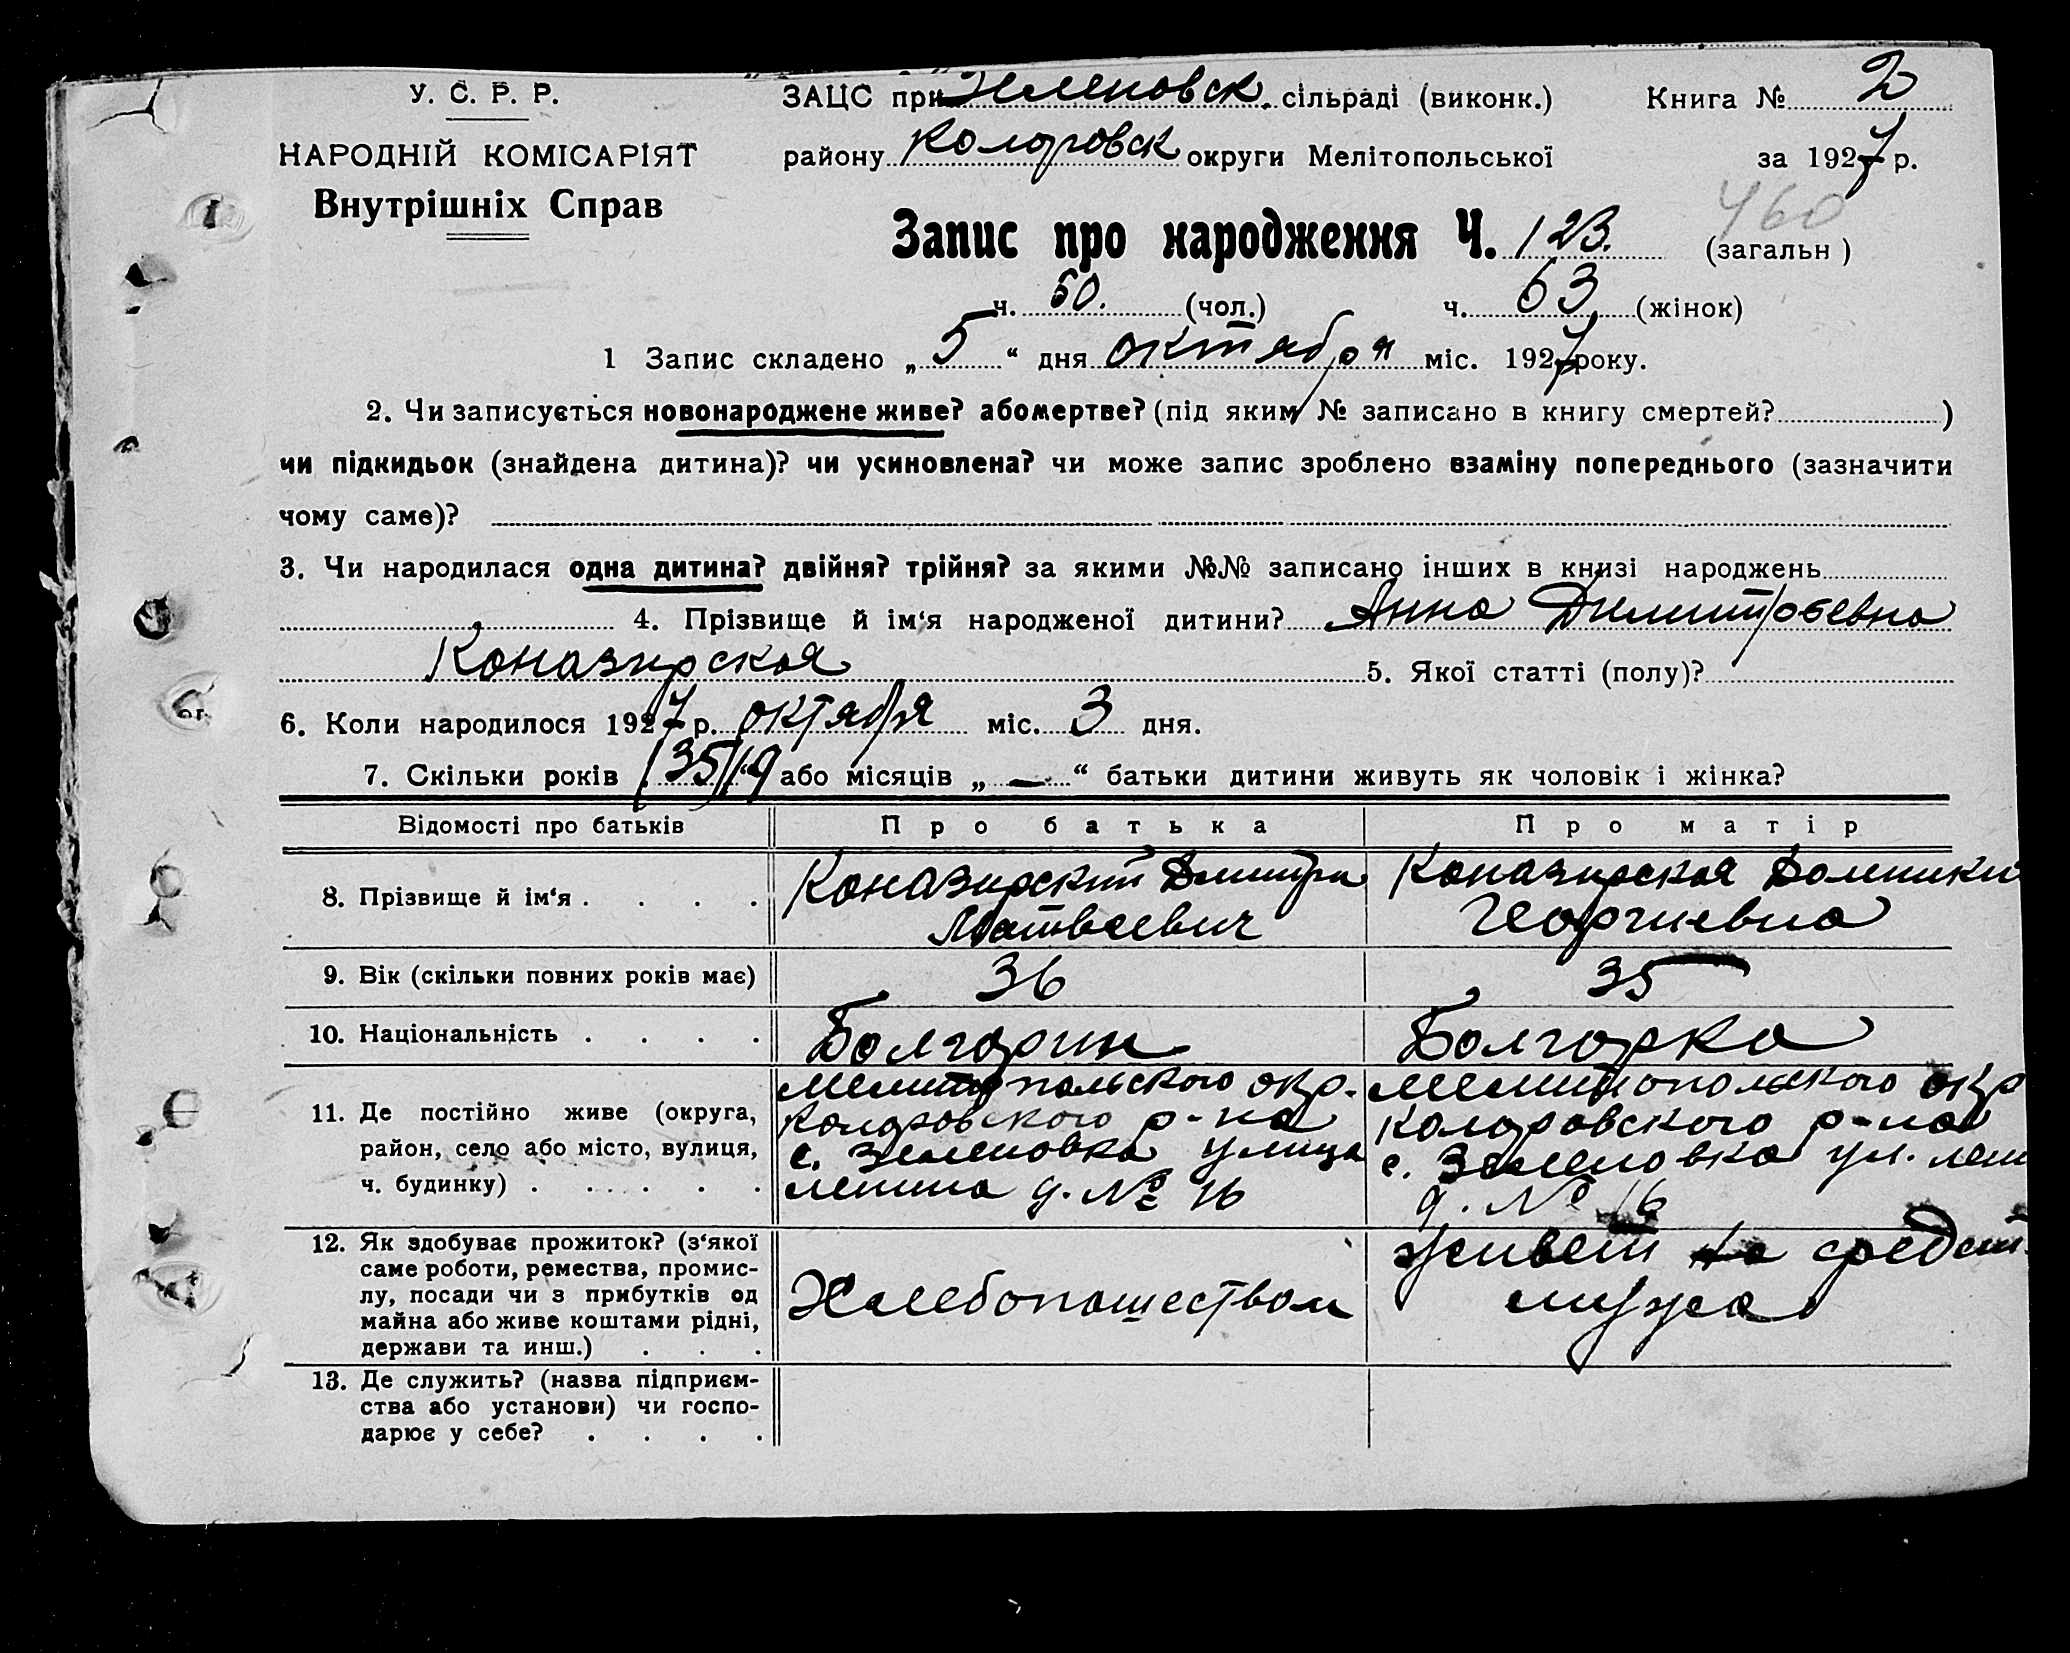 У. С. Р. Р.
НАРОДНІЙ КОМІСАРІЯТ
Внутрішніх Справ
ЗАЦС при Зеленовск. сільраді (виконк.) Книга № 2
району Коларовск округи Мелітопольської за 1927 р.
460
Запис про народження Ч. 123. (загальн )
ч. 60. (чол.) ч. 63 (жінок)
1 Запис складено „ 5 “ дня октября міс. 1927 року.
2. Чи записується новонароджене живе? або мертве? (під яким № записано в книгу смертей? )
чи підкидьок (знайдена дитина)? чи усиновлена? чи може запис зроблено взаміну попереднього (зазначити
чому саме)?
3. Чи народилася одна дитина? двійня? трійня? за якими №№ записано інших в книзі народжень
4. Прізвище й ім‘я народженої дитини? Анна Димитровна
Коназирская 5. Якої статті (полу)?
6. Коли народилося 1927 р. октября міс. 3 дня.
7. Скільки років або місяців „ — “ батьки дитини живуть як чоловік і жінка?
Відомості про батьків Про батька Про матір
8. Прізвище й ім‘я . . . . Коназирский Димитри Матвеевич Коназирская Домникия Георгиевна
9. Вік (скільки повних років має) 36 35
10. Національність . . . . Болгарин Болгарка
11. Де постійно живе (округа,
район, село або місто, вулиця,
ч. будинку) . . . . . .
Мелитопольского окр.
Коларовского р-на
с. Зеленовка улица
Ленина д. № 16
Мелитопольского окр
Коларовского р-на
с. Зеленовка ул. Лен
д. № 16
12. Як здобуває прожиток? (з‘якої
саме роботи, ремества, промис-
лу, посади чи з прибутків од
майна або живе коштами рідні,
держави та инш.) . . .
Хлебопашеством
живет на средст
мужа
13. Де служить? (назва підприєм-
ства або установи) чи госпо-
дарює у себе? . . . .